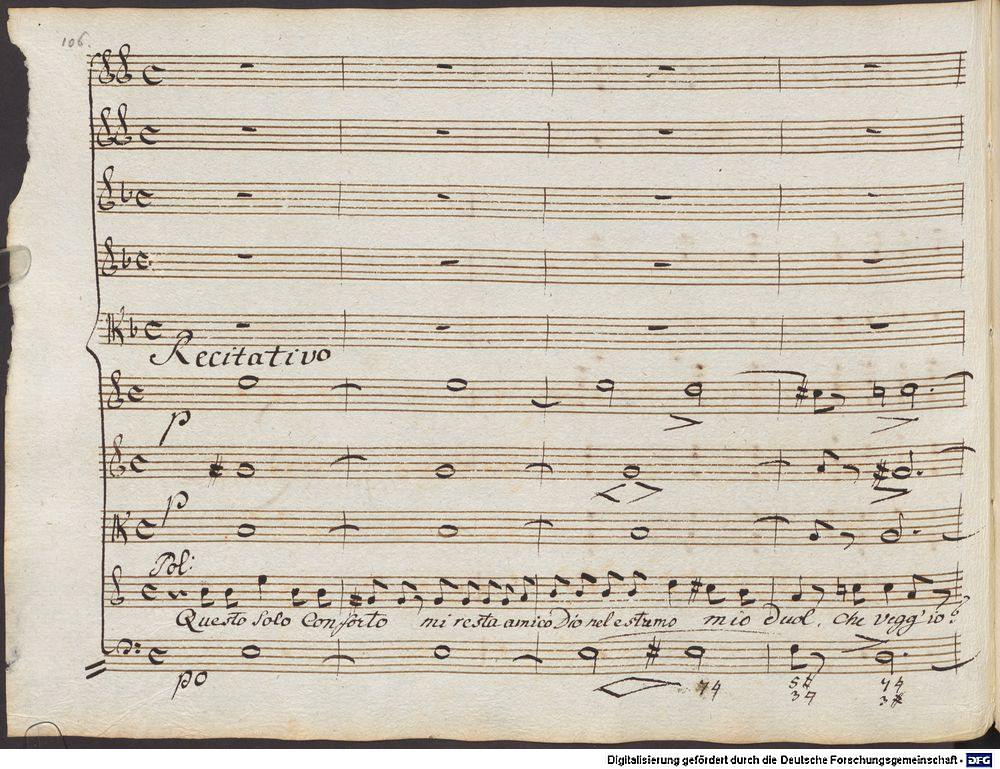 106.
Recitativo
p
p
Pol:
Questo solo Conforto mi resta amico Dio nel estremo mio duol. che vegg'io?
po
Digitalisierung gefördert durch die Deutsche Forschungsgemeinschaft - DFG